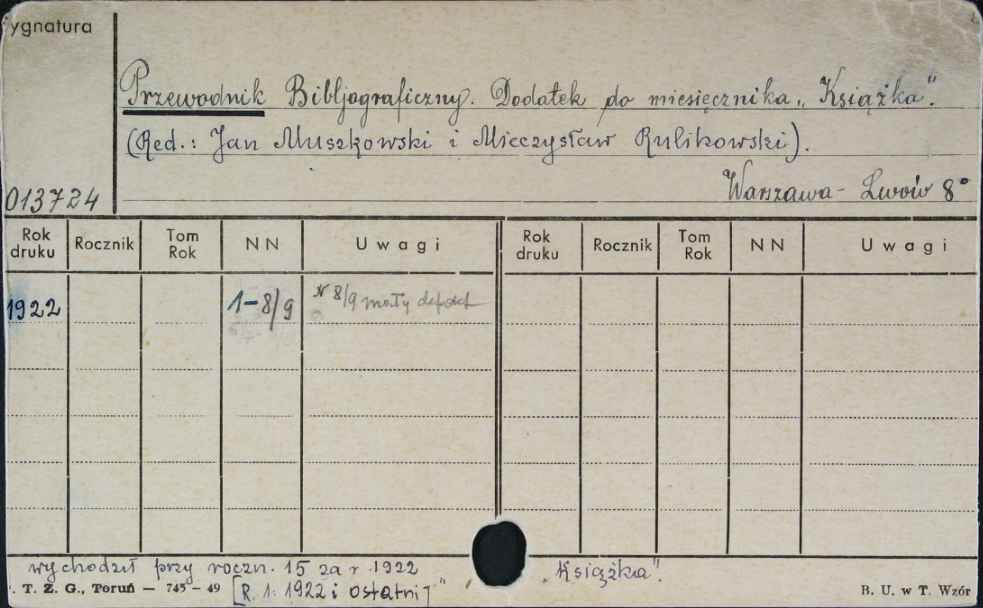 ygnatura
Przewodnik Bibljograficzny. Dodatek do miesięcznika „Książka".
(Red.: Jan Muszkowski i Mieczysław Rulikowski).
013724
Warszawa - Lwów 8°
Rok druku Rocznik Tom Rok NN Uwagi Rok druku Rocznik Tom Rok NN Uwagi
1922 1-8/9 N 8/9 mały defekt
wychodził przy roczn. 15 za r 1922 „Książka".
T. Z. G., Toruń — 745 — 49 [R. 1: 1922 i ostatni] B. U. w T. Wzór